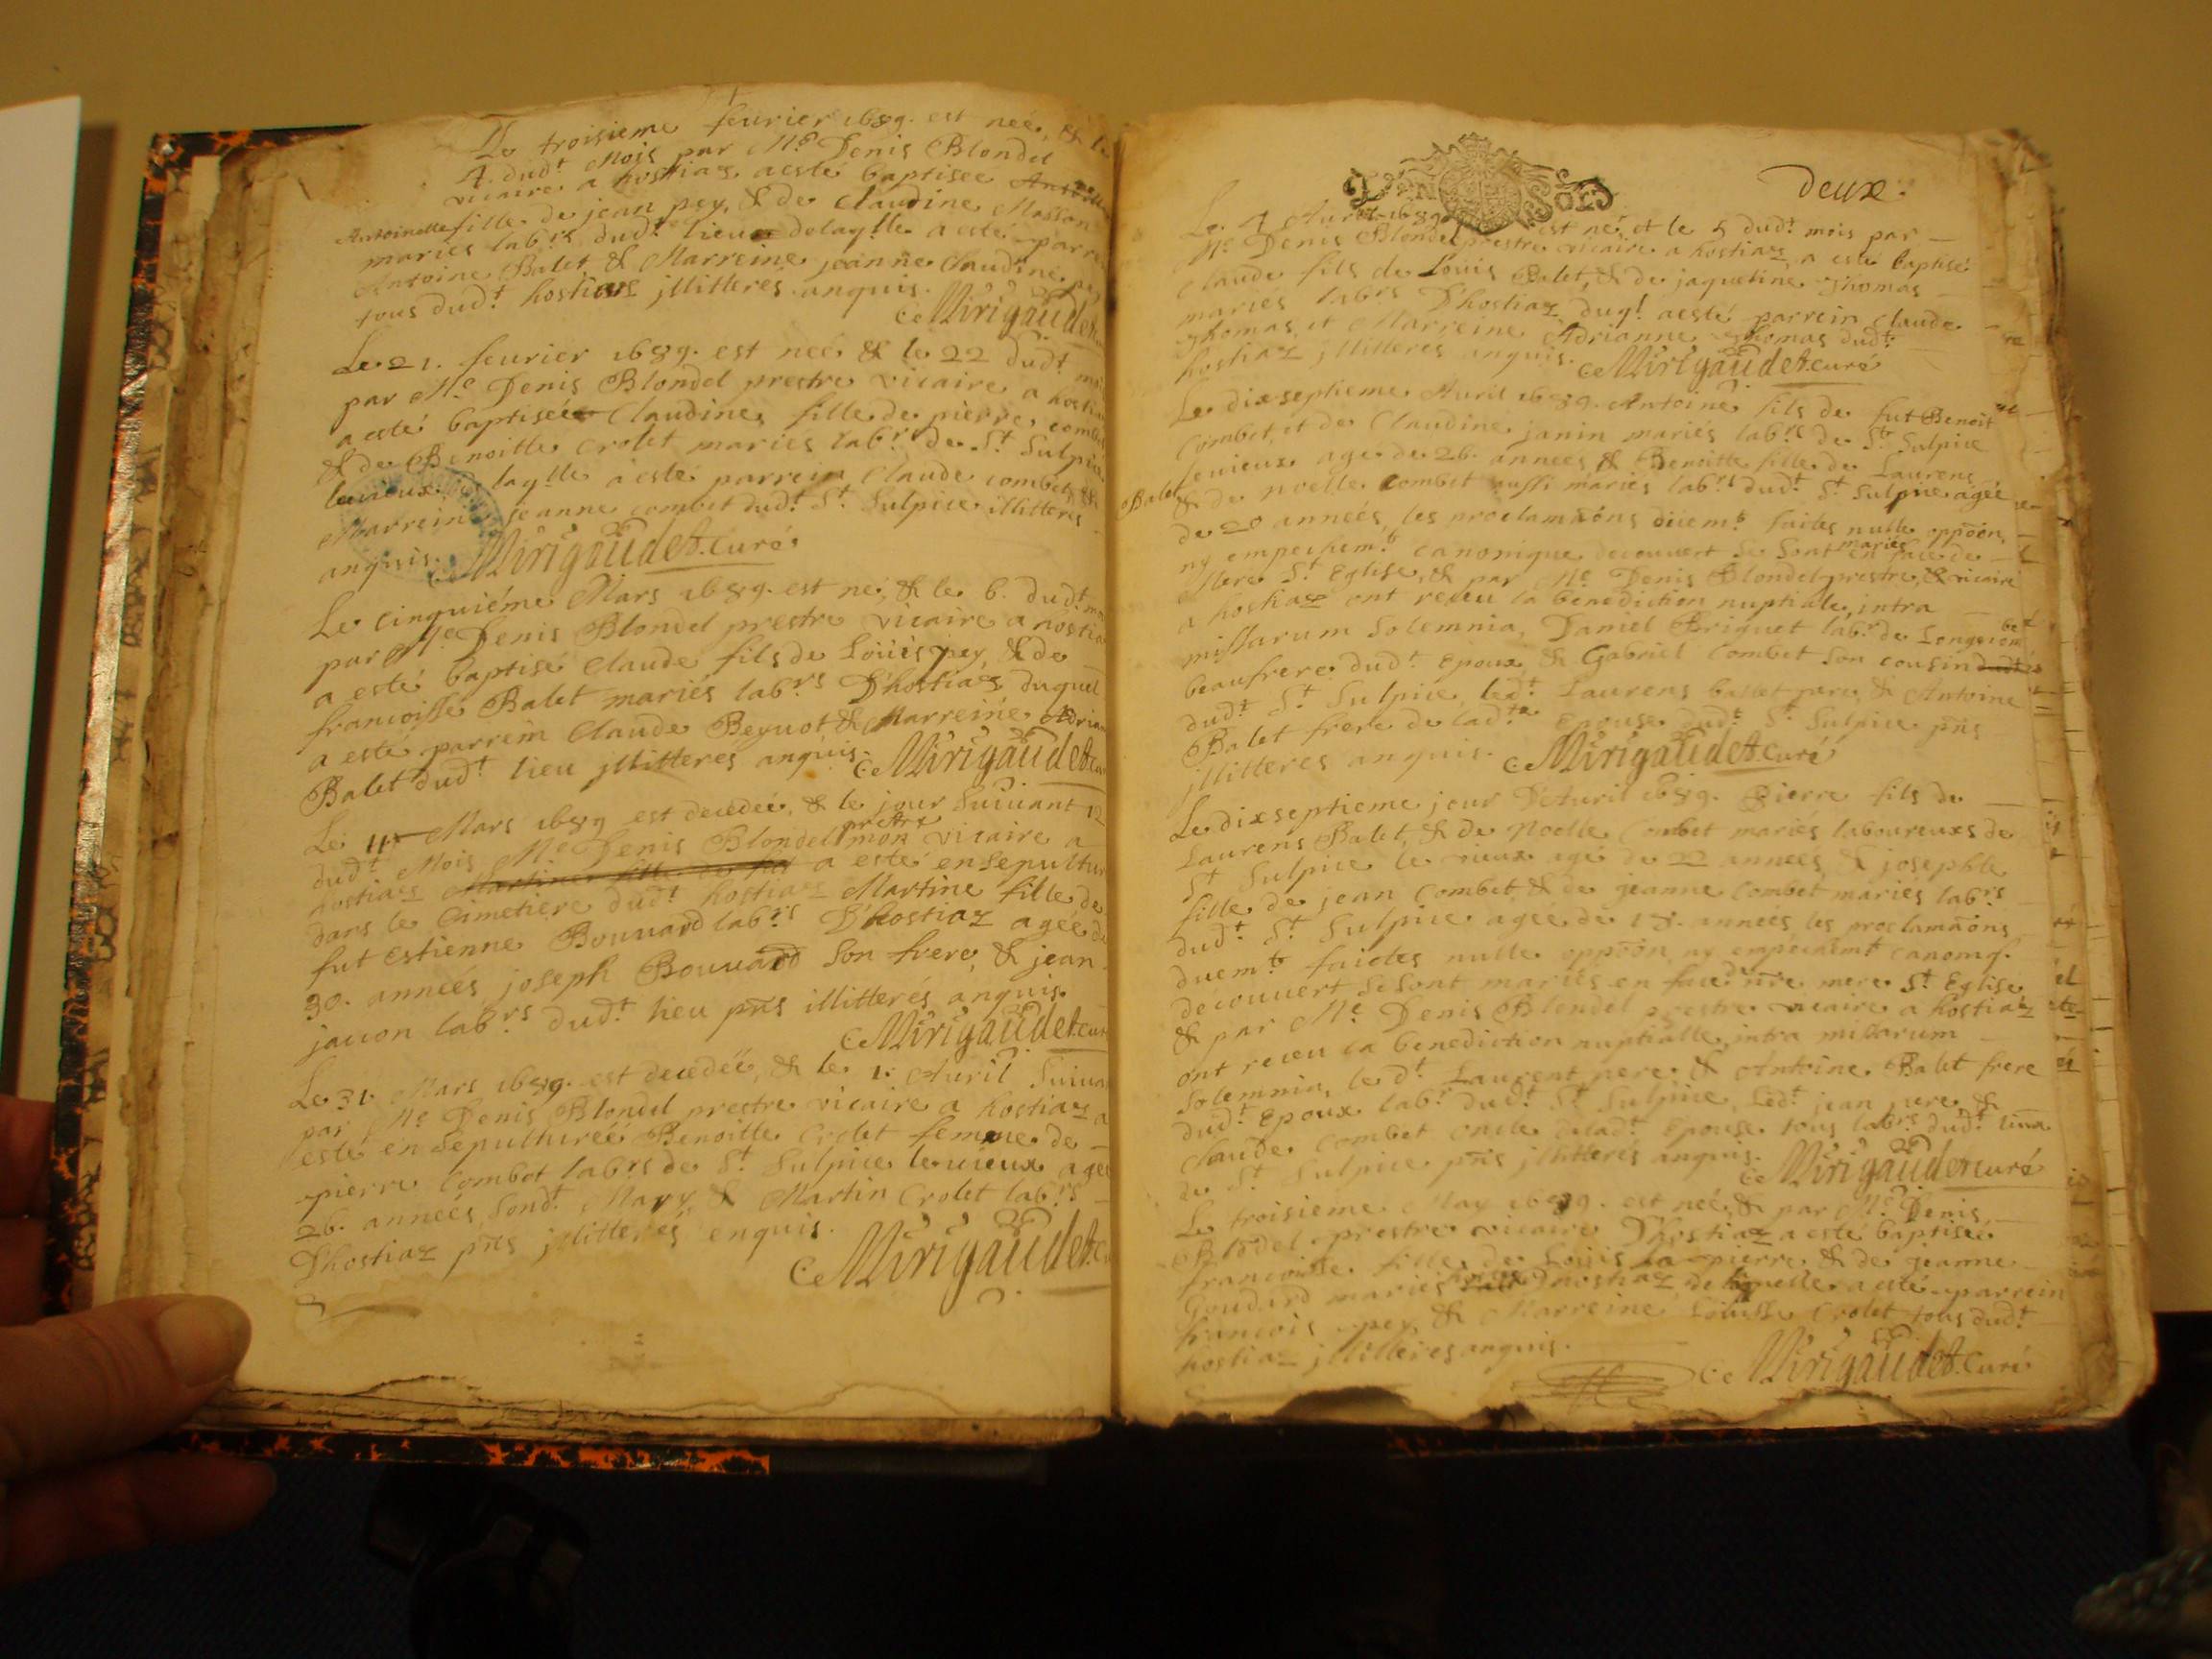 Le troisieme feurier 1689. est neé, & le
4. dud.t Mois par M.e Denis Blondel
vicaire a hostiaz a esté baptisee
Antoinette fille de jean pey, & de Claudine Masson
mariés lab.rs dud.t lieu delaq.lle a esté parre
Antoine Balet & Marreine jeanne Claudine pey
tous dud.t hostiaz jllitterés anquis.
C Mirigaudet
Le 21. feurier 1689. est neé & le 22 dud.t
par M.e Denis Blondel prestre vicaire a hostia
a esté baptiseé Claudine, fille de pierre combet
& de Benoitte Crolet mariés lab.r de S.t Sulpice
leuieux laq.lle a esté parrein Claude combet, &
Marreine jeanne combet dud.t S.t Sulpice illitterés
anquis. C Mirigaudet Curé.
Le cinquiéme Mars 1689. est né, & le 6. dud.t
par M.e Denis Blondel prestre vicaire a hostia
a esté baptisé Claude fils de Loüis pey, & de
francoisse Balet mariés lab.rs D'hostiaz duquel
a esté parrein Claude Beguot & Marreine Adrian
Balet dud.t lieu jllitteres anquis. C Mirigaudet
Le 11 Mars 1689 est decedeé, & le jour Suiuant 12
prestre
dud.t Mois M.e Denis Blondel mon vicaire a
hostiaz a esté ensepultur
dans le Cimetiere dud.t hostiaz Martine fille de
fut estienne Bouuard lab.rs D'hostiaz agée de
30. anneés joseph Bouuard Son frere, & jean
jauon lab.rs dud.t lieu pñs illitterés anquis.
C Mirigaudet cur
Le 31. Mars 1689. est decedeé, & le 1. Auril Suiua
par M.e Denis Blondel prestre vicaire a hostiaz a
esté ensepultureé Benoitte Crolet femme de
pierre Combet lab.rs de S.t Sulpice le uieux ageé
26. anneés Sond.t Mary, & Martin Crolet lab.rs
D'hostiaz pñs jllitterés enquis.
C Mirigaudet
Deux.
DEN SOLS
Le 4 Auril 1689 est né, et le 5 dud.t mois par
M.e Denis Blondel prestre vicaire a hostiaz a esté baptisé
Claude fils de Loüis Balet, & de jaquetine Thomas
mariés lab.rs D'hostiaz duq.l a esté parrein Claude
Thomas, et Marreine Adrianne Thomas dud.t
hostiaz jllitteres anquis. C Mirigaudet curé
Le dixseptieme Auril 1689. Antoine fils de fut Benoit
Combet, et de Claudine janin mariés lab.rs de S.t Sulpice
leuieux agé de 26. anneés & Benoitte fille de Laurens
Balet & de noelle Combet aussi mariés lab.rs dud.t S.t Sulpice ageé
de 20 anneés, les proclamãons düem.t faites nulle oppõon,
mariés
ny empechem.t canonique decouuert Se Sont en face de
Mere S.t Eglise, & par M.e Denis Blondel prestre, & vicaire
a hostiaz ont receu la benediction nuptiale, intra
missarum Solemnia, Daniel Briquet lab.r de Longecom
be
beaufrere dud.t Epoux & Gabriel Combet Son cousin
dud.t S.t Sulpice, led.t Laurens ballet pere, & Antoine
Balet frere de lad.te Epouse dud.t S.t Sulpice pñs
jllitteres anquis. C Mirigaudet Curé
Le dixseptieme jour D'Auril 1689. Pierre fils de
Laurens Balet, & de Noelle Combet mariés laboureuxs de
S.t Sulpice le vieux agé de 22 anneés, & josephle
fille de jean Combet & de jeanne Combet mariés lab.rs
dud.t S.t Sulpice ageé de 18. anneés, les proclamãons
duem.t faictes nulle oppõon ny empechem.t canoniq.
decouuert Se Sont mariés en face de ñre mere S.t Eglise
& par M.e Denis Blondel prestre vicaire a hostiaz
ont receu la benediction nuptialle, intra missarum
Solemnia, led.t Laurent pere & Antoine Balet frere
dud.t Epoux lab.r dud.t S.t Sulpice, Led.t jean pere &
Claude Combet oncle delad.t Epouse tous lab.rs dud.t lieu
de S.t Sulpice pñs jllitterés anquis.
C Mirigaudet curé
Le troisieme May 1689. est neé, & par M.e Denis
Blõdel prestre vicaire D'hostiaz a esté baptiseé
francoisse fille de Loüis la pierre & de jeanne
Goudard mariés D'hostiaz, de laquelle a esté parrein
francois pey, & Marreine Loüisse Crolet tous dud.t
hostiaz jllitteres anquis.
C Mirigaudet Curé